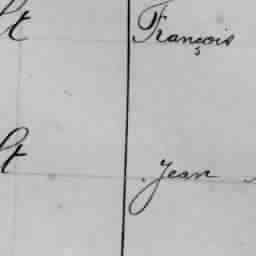 St François
St Jean